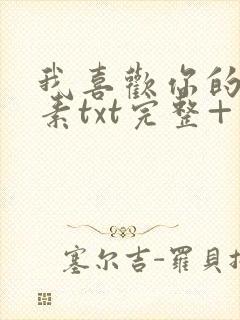 我喜歡你的
素txt完整+
塞尔吉-羅貝